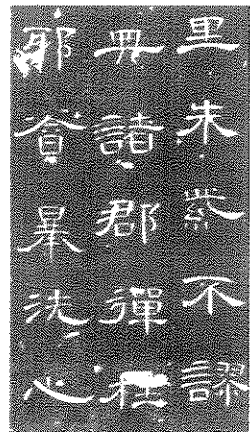 里朱紫不謬
典諸郡彈枉
邪貪暴洗心